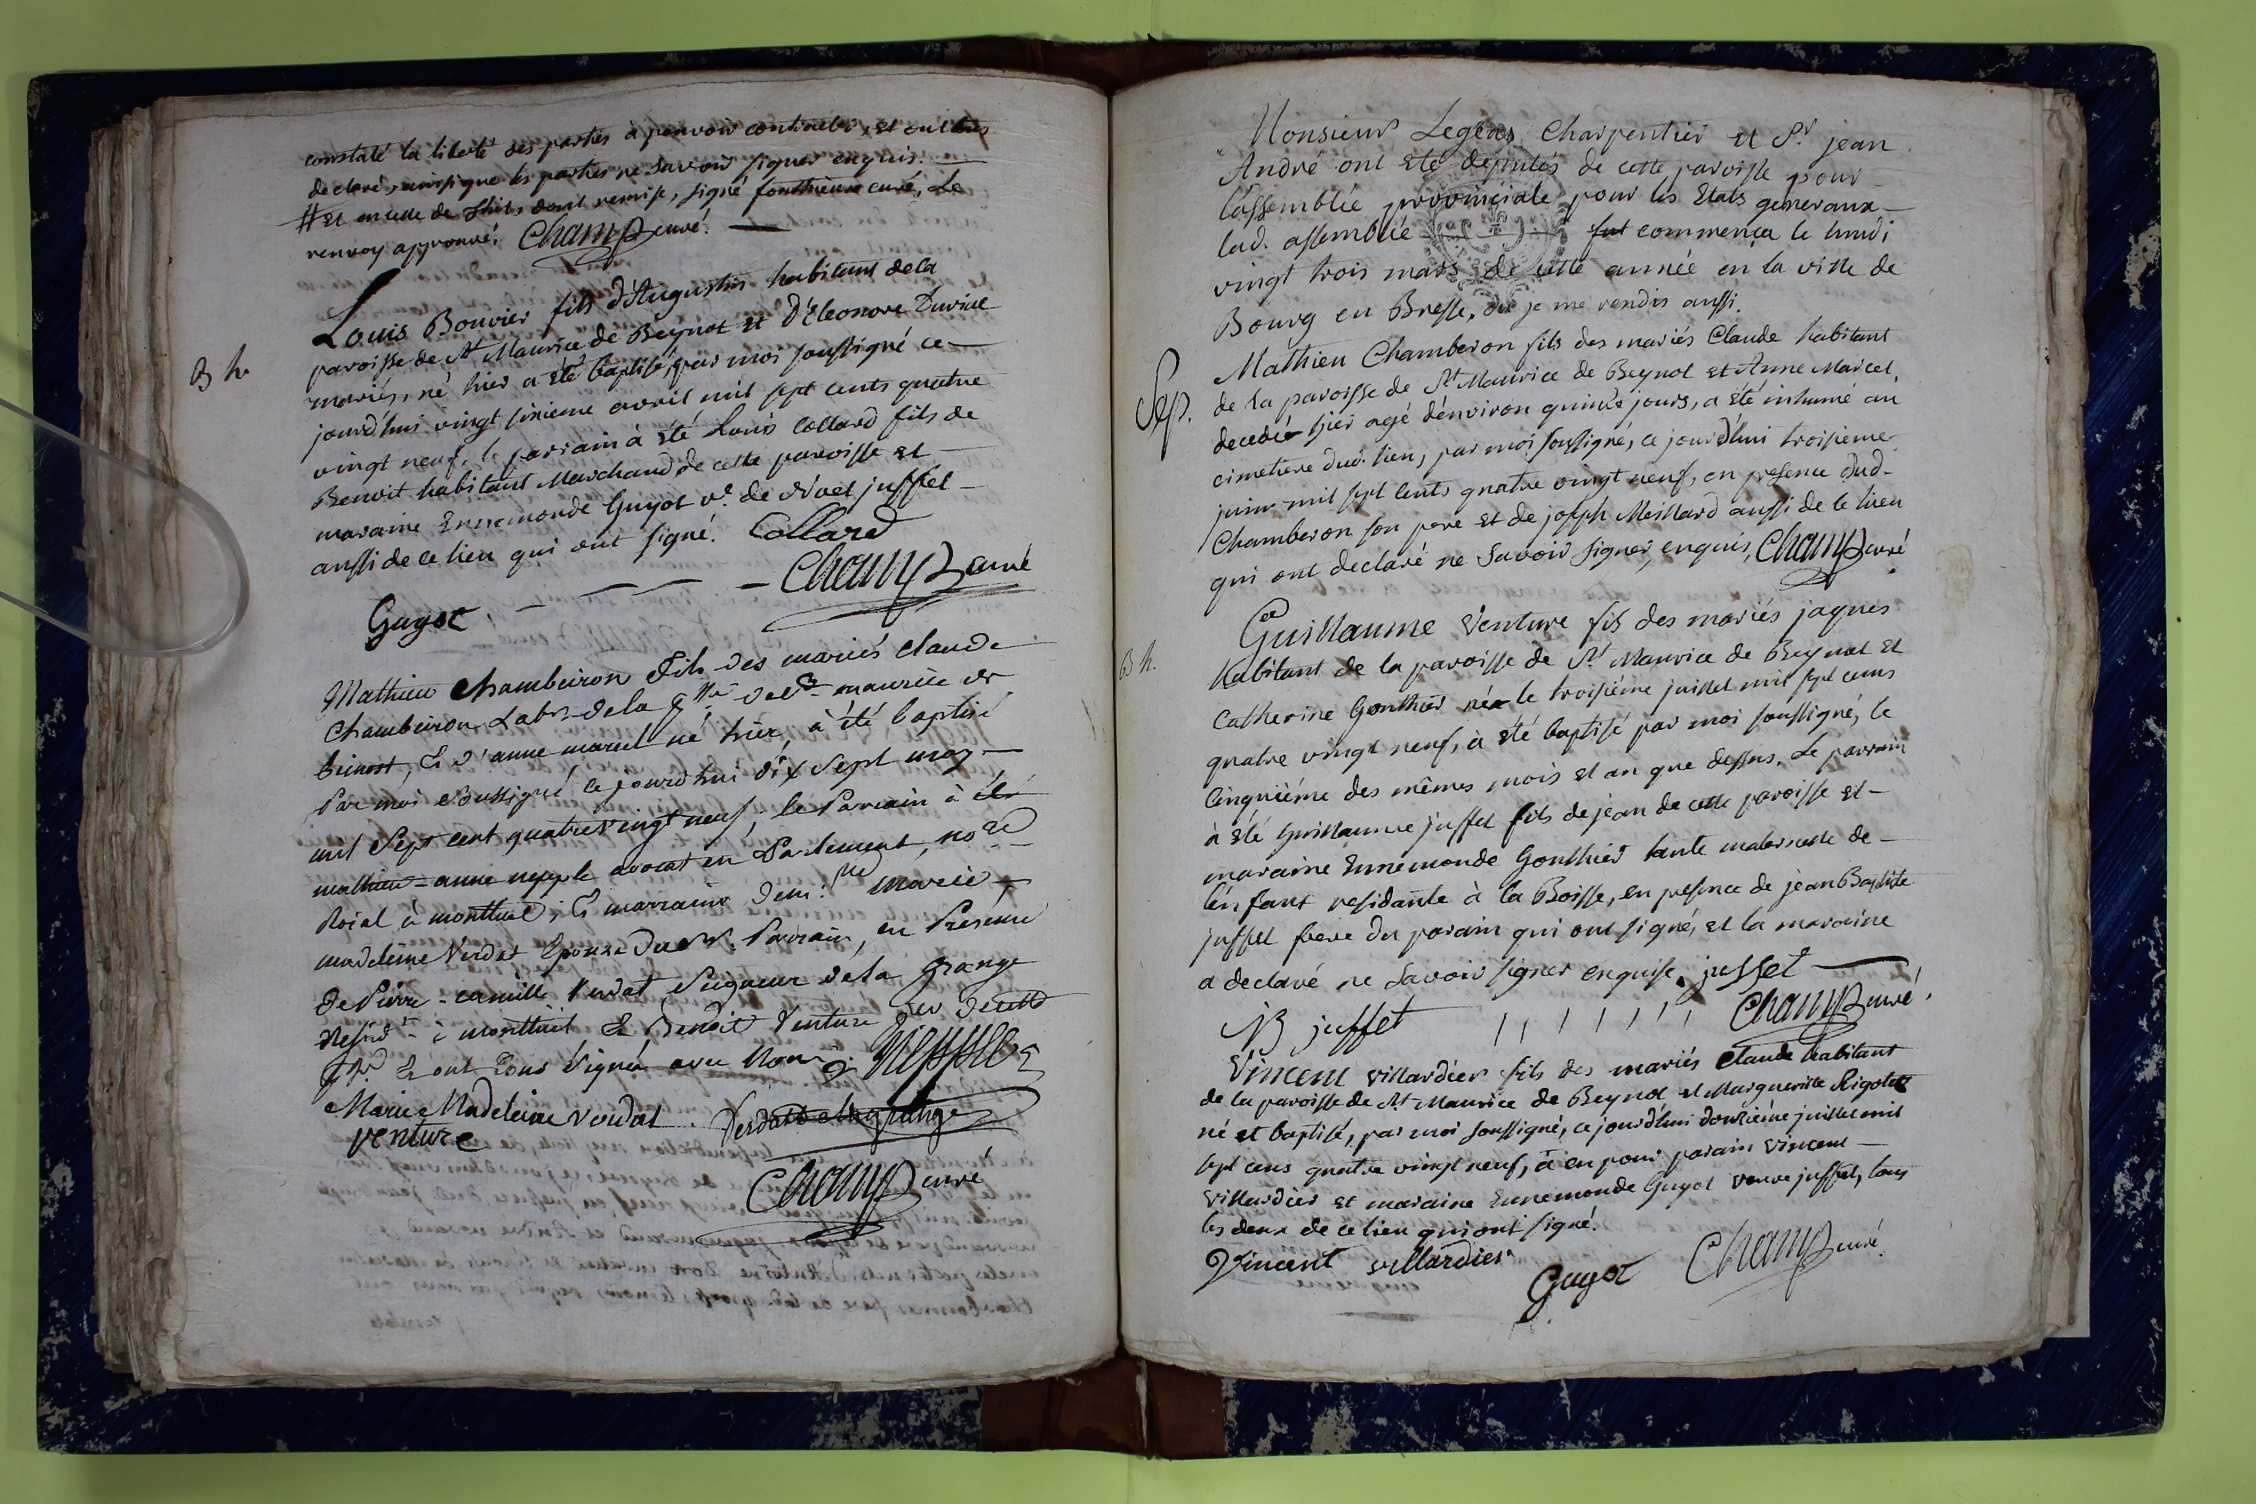 constaté la liberté des parties à pouvoir contracter, et ont les
declaré, ainsi que les parties ne savoir signer enquis. —
# et en celle de  dont remise, signé fonthieure curé, Le
renvoy approuvé, Champ curé. —
B h
Louis Bouvier fils d'Augustin habitant de la
paroisse de St Maurice de Beynot et d'Eleonore Durine
mariés, né hier a été baptisé par moi soussigné ce —
jourd'hui vingt sixieme avril mil sept cents quatre
vingt neuf, le parrain à été Louis Collard fils de
Benoit habitant Marchand de cette paroisse et —
maraine Ennemonde Guyot ve. de Noel juffet —
aussi de ce lieu qui ont signé. Collard
Champ curé
Guyot
Mathieu Chambeiron Fils des mariés claude
Chambeiron Labr. de la psse de St maurice de
beinost, & d'anne marcel né hier, à été baptisé
Par moi Soussigné ce jourd'hui dix Sept may —
mil Sept cent quatre Vingt neuf le Parrain à été
mathieu-anne nepple avocat en Parlement, nore
Roial à montluel; & marraine dem.lle Marie —
madeleine Verdat Epouse du Sr. Parrain, en Présence
de Pierre-camille Verdat Seigneur de la Grange
Residt à montluel & Benoit Venture de cette
psse & ont tous Signé avec Nous. Nepple
Marie Madeleine Verdat. Verdat de la grange
venture
Champ curé
Monsieur Legeas, Charpentier et Sr. jean
André ont été députés de cette paroisse pour
l'assemblée provinciale pour les Etats generaux —
lad. assemblée fut commença le lundi
vingt trois mars de cette année en la ville de
Bourg en Bresse, où je me rendis aussi.
Sep.
Mathieu Chamberon fils des mariés Claude habitant
de la paroisse de St Maurice de Beynot et Anne Marcel,
decedé hier agé d'environ quinze jours, a été inhumé au
cimetiere dud. lieu, par moi soussigné, ce jourd'hui troisieme
juin mil sept cents quatre vingt neuf, en presence dud.
Chamberon son pere et de joseph Meillard aussi de ce lieu
qui ont declaré ne savoir signer, enquis, Champ curé
B h.
Guillaume Venture fils des mariés jaques
habitant de la paroisse de St Maurice de Beynot et
Catherine Gonthier né le troisiéme juillet mil sept cens
quatre vingt neuf, à été baptisé par moi soussigné, le
Cinquiéme des mêmes mois et an que dessus. Le parrain
à été Guillaume juffet fils de jean de cette paroisse et —
maraine Ennemonde Gonthier tante maternelle de —
l'enfant residante à la Boisse, en presence de jean Baptiste
juffet frere du parain qui ont signé, et la maraine
a declaré ne savoir signer enquise. jusset —
JB juffet Champ curé.
Vincent Villardier fils des mariés Claude habitant
de la paroisse de St Maurice de Beynot et Marguerite Rigolet
né et baptisé, par moi soussigné, ce jourd'hui douziéme juillet mil
sept cens quatre vingt neuf, à eu pour parain Vincent —
Villardier et maraine Ennemonde Guyot veuve juffet, tous
les deux de ce lieu qui ont signé.
Vincent villardier
Guyot Champ curé.